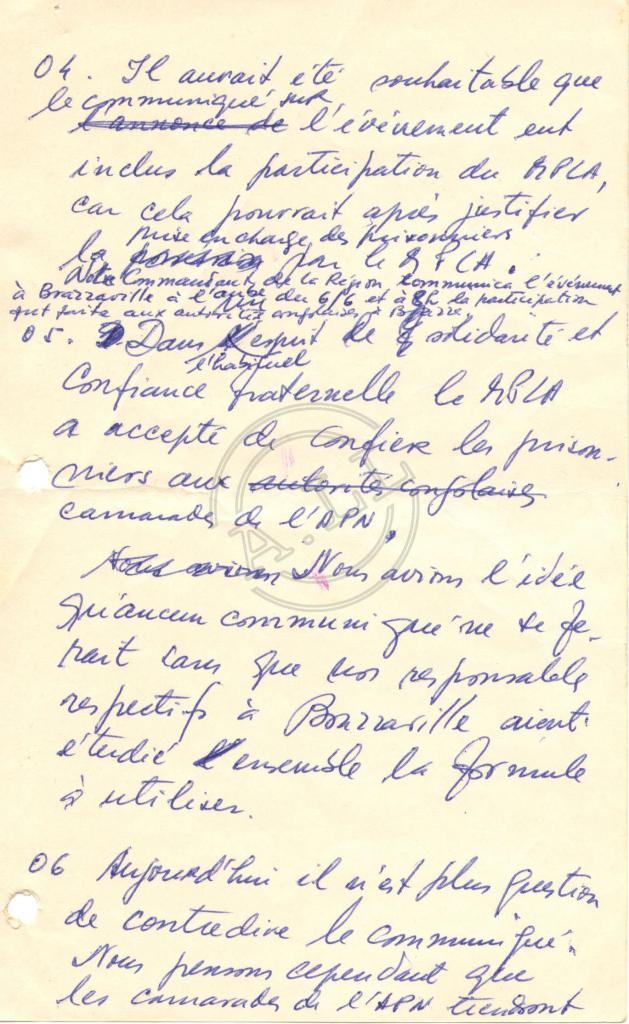 04. Il aurait été souhaitable que
le communiqué sur
l'annonce de l'événement eut
inclus la participation du MPLA,
car cela pourrait après justifier
prise en charge des prisonniers
la par le MPLA.
Commandant de la Région, communica l'événement
à Brazzaville à l'aube du 6/6 et à 8h la participation
fut faite aux autorités congolaises à B/zza.
05. Dans l'esprit de solidarité et
l'habituel
Confiance fraternelle le MPLA
a accepté de confier les prison-
niers aux autorités congolaises
camarades de l'APN.
Nous avions Nous avions l'idée
qu'aucun communiqué ne se fe-
rait sans que nos responsables
respectifs à Brazzaville aient
étudié l'ensemble la formule
à utiliser.
06 Aujourd'hui il n'est plus question
de contredire le communiqué.
Nous pensons cependant que
les camarades de l'APN tiendront